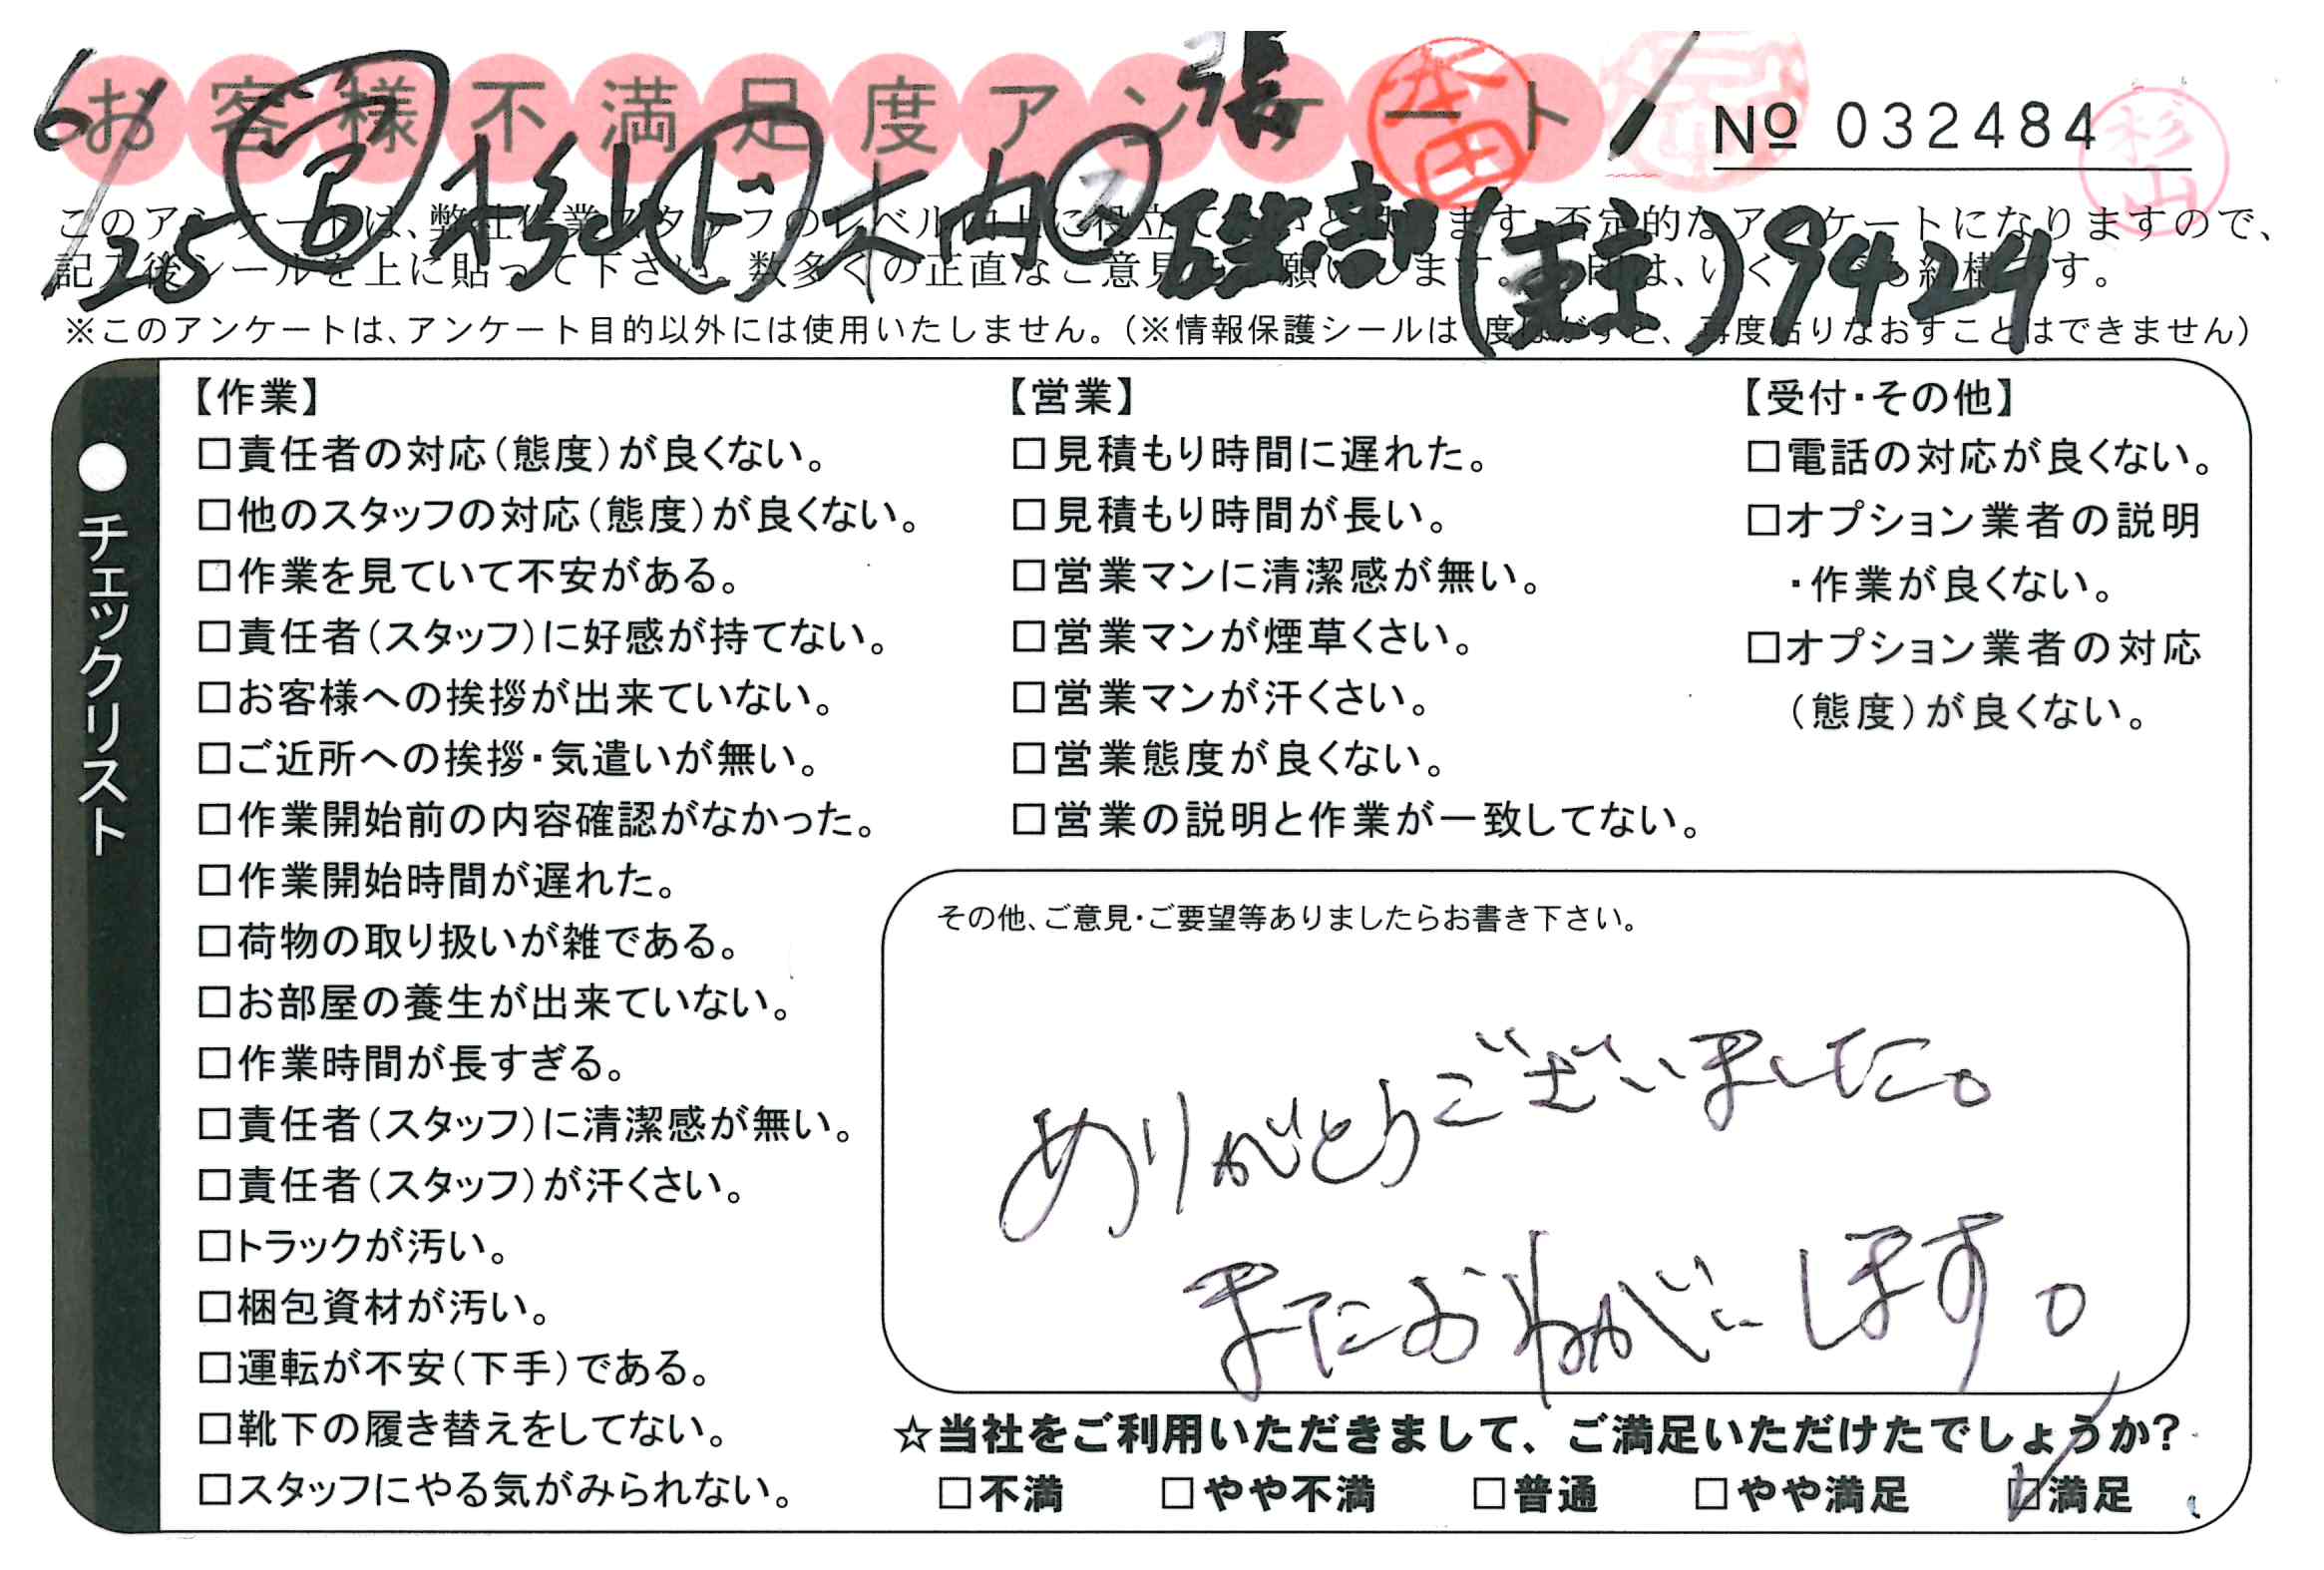 お客様不満足度アンケート
張
本田
No 032484
杉山
6/25 杉山 ド 木内 ス 磯部 (東京) 9424
このアンケートは、弊社作業スタッフのレベル向上に役立て ます。否定的なアンケートになりますので、
記入後シールを上に貼って下さい。数多くの正直なご意見 お願いします。 は、いくつでも結構です。
※このアンケートは、アンケート目的以外には使用いたしません。(※情報保護シールは 度はがすと、再度貼りなおすことはできません)
●チェックリスト
【作業】
□責任者の対応(態度)が良くない。
□他のスタッフの対応(態度)が良くない。
□作業を見ていて不安がある。
□責任者(スタッフ)に好感が持てない。
□お客様への挨拶が出来ていない。
□ご近所への挨拶・気遣いが無い。
□作業開始前の内容確認がなかった。
□作業開始時間が遅れた。
□荷物の取り扱いが雑である。
□お部屋の養生が出来ていない。
□作業時間が長すぎる。
□責任者(スタッフ)に清潔感が無い。
□責任者(スタッフ)が汗くさい。
□トラックが汚い。
□梱包資材が汚い。
□運転が不安(下手)である。
□靴下の履き替えをしてない。
□スタッフにやる気がみられない。
【営業】
□見積もり時間に遅れた。
□見積もり時間が長い。
□営業マンに清潔感が無い。
□営業マンが煙草くさい。
□営業マンが汗くさい。
□営業態度が良くない。
□営業の説明と作業が一致してない。
【受付・その他】
□電話の対応が良くない。
□オプション業者の説明
・作業が良くない。
□オプション業者の対応
(態度)が良くない。
その他、ご意見・ご要望等ありましたらお書き下さい。
ありがとうございました。
またおねがいします。
☆当社をご利用いただきまして、ご満足いただけたでしょうか?
□不満 □やや不満 □普通 □やや満足 ☑満足